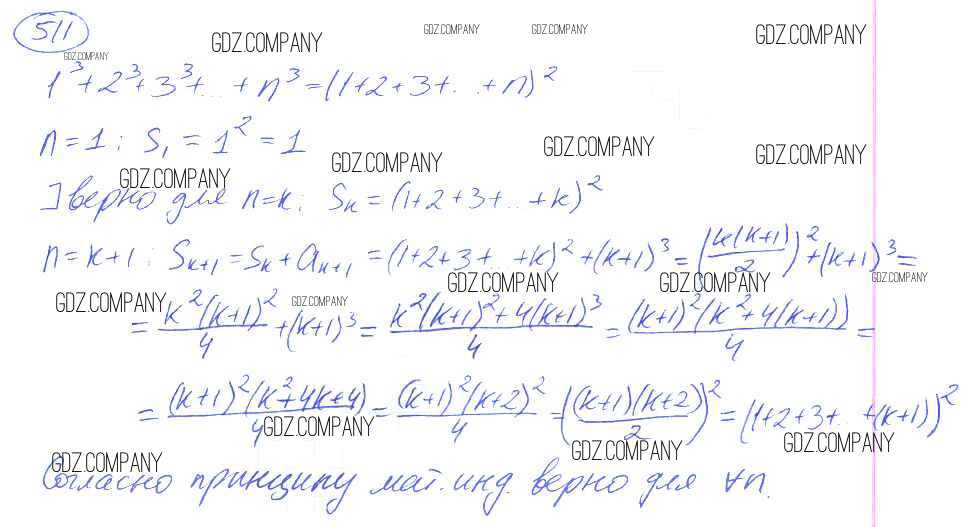 511
GDZ.COMPANY GDZ.COMPANY GDZ.COMPANY GDZ.COMPANY
GDZ.COMPANY
1³+2³+3³+...+n³=(1+2+3+...+n)²
n=1: S₁=1²=1
GDZ.COMPANY GDZ.COMPANY GDZ.COMPANY
GDZ.COMPANY
] верно для n=k: Sₖ=(1+2+3+...+k)²
n=k+1: Sₖ₊₁=Sₖ+aₖ₊₁=(1+2+3+...+k)²+(k+1)³=(k(k+1)/2)²+(k+1)³=
GDZ.COMPANY GDZ.COMPANY GDZ.COMPANY
GDZ.COMPANY GDZ.COMPANY
=k²(k+1)²/4+(k+1)³=(k²(k+1)²+4(k+1)³)/4=((k+1)²(k²+4(k+1)))/4=
=((k+1)²(k²+4k+4))/4=((k+1)²(k+2)²)/4=((k+1)(k+2)/2)²=(1+2+3+...+(k+1))²
GDZ.COMPANY GDZ.COMPANY GDZ.COMPANY
GDZ.COMPANY
Согласно принципу мат. инд. верно для ∀n.